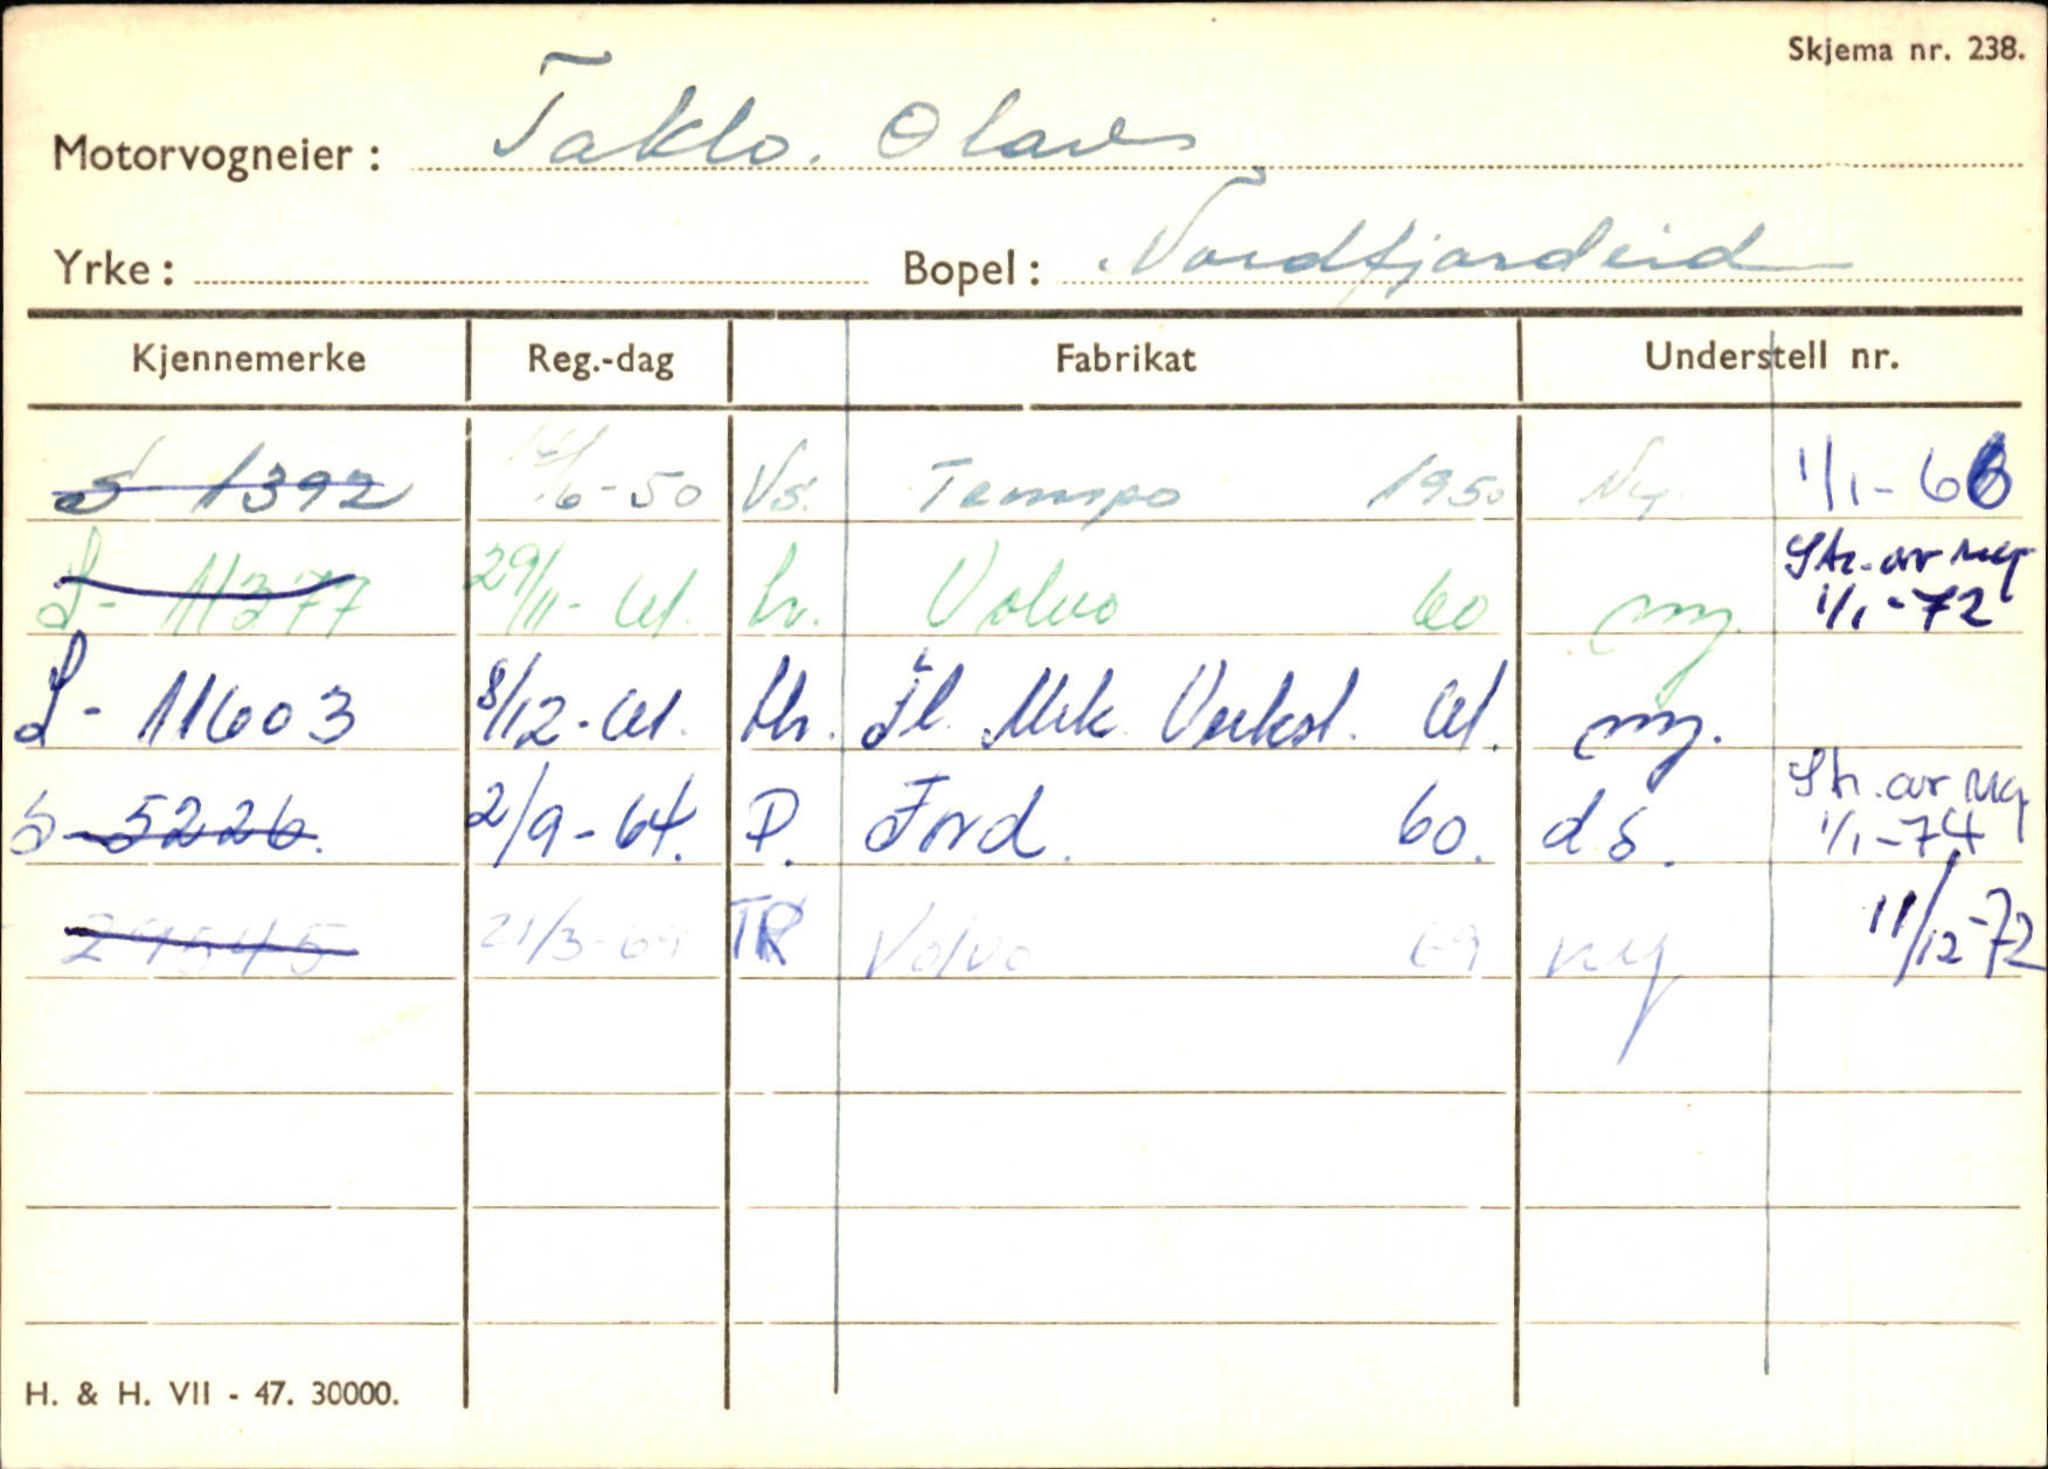 Skjema nr. 238.
Motorvogneier : Taklo. Olav
Yrke : Bopel : Nordfjordeid
Kjennemerke Reg.-dag Fabrikat Understell nr.
S 1392 14/6-50 Vs. Tempo 1950 Ny. 1/1-68
S- 11377 29/11-61. Lv. Volvo 60 ny. Str. av reg 1/1-72
S- 11603 8/12-61. Lh. Fl. Mek. Verkst. 61. ny.
S-5226. 2/9-64. P. Ford. 60. d s. Str. av reg 1/1-74
29545 21/3-69 TR Volvo 69 ny 11/12-72
H. & H. VII - 47. 30000.